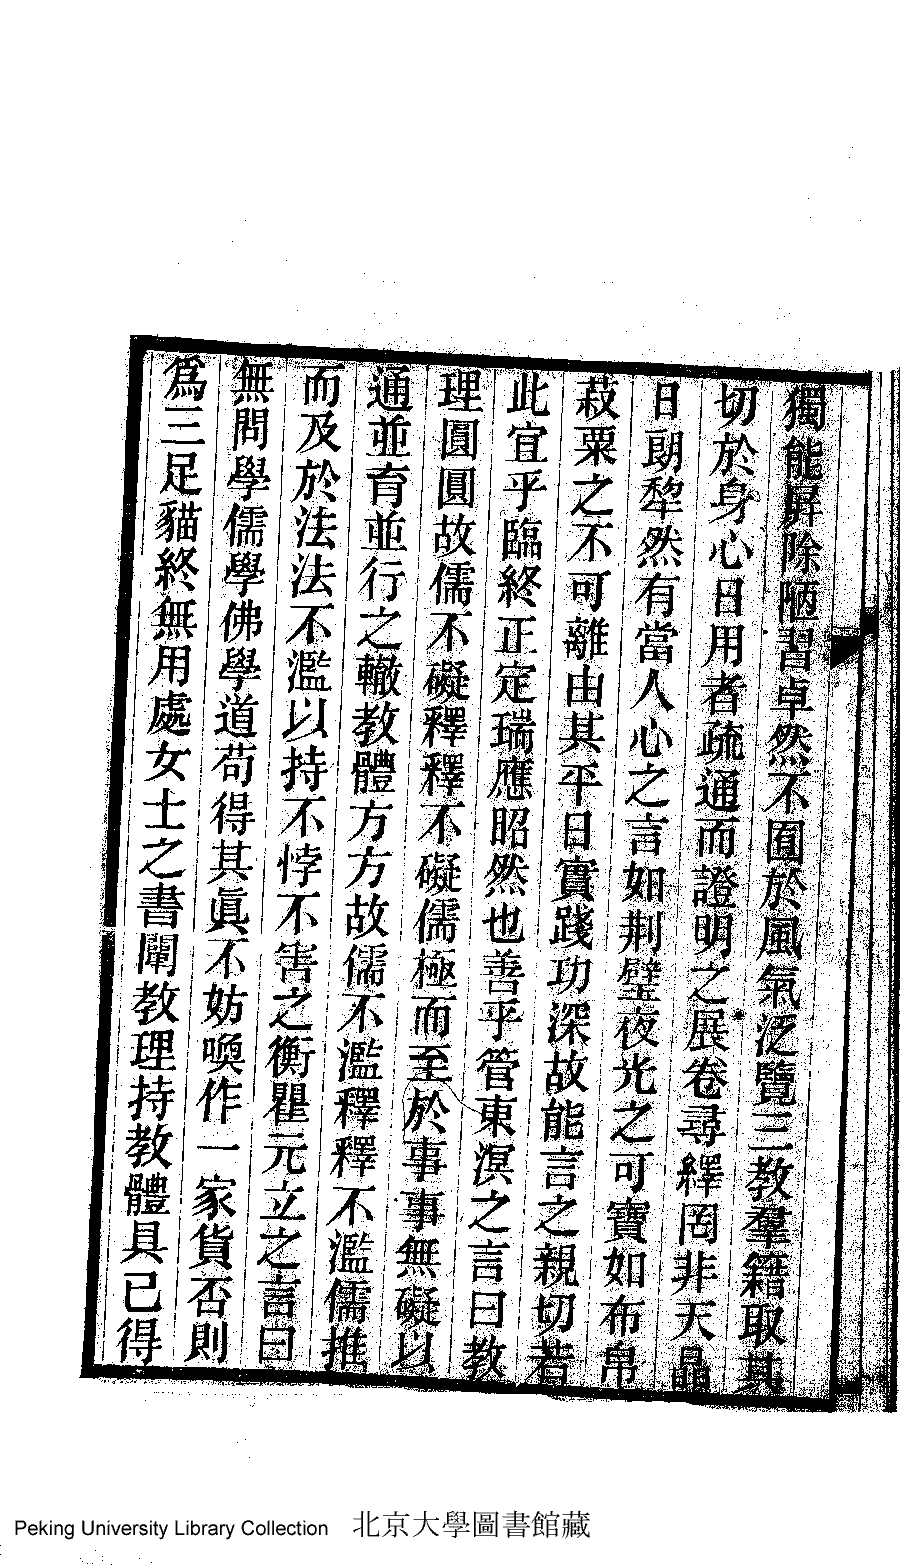 獨能屏除陋習卓然不囿於風氣泛覽三教羣籍取其
切於身心日用者疏通而證明之展卷尋繹罔非天晶
日朗犂然有當人心之言如荆璧夜光之可寶如布帛
菽粟之不可離由其平日實踐功深故能言之親切若
此宜乎臨終正定瑞應昭然也善乎管東溟之言曰教
理圓圓故儒不礙釋釋不礙儒極而至於事事無礙以
通並育並行之轍教體方方故儒不濫釋釋不濫儒推
而及於法法不濫以持不悖不害之衡瞿元立之言曰
無問學儒學佛學道苟得其眞不妨喚作一家貨否則
爲三足貓終無用處女士之書闡教理持教體具已得
Peking University Library Collection 北京大學圖書館藏